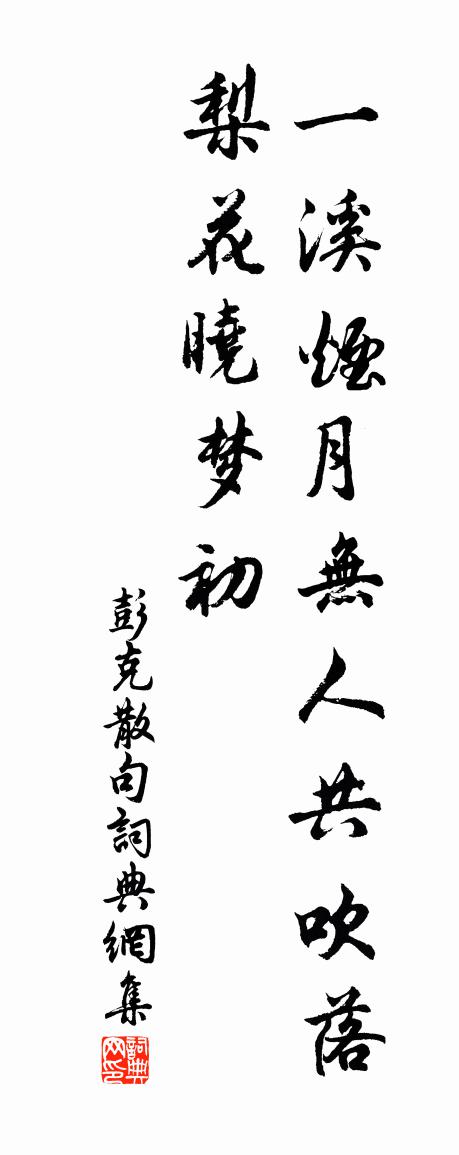 一溪煙月無人共吹落
梨花曉梦初
彭克散句詞典網集
詞典网印